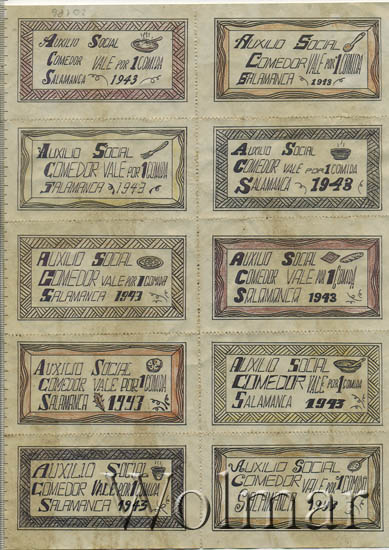 AUXILIO SOCIAL
COMEDOR VALE POR 1 COMIDA
SALAMANCA 1943
AUXILIO SOCIAL
COMEDOR VALE POR 1 COMIDA
SALAMANCA 1943
AUXILIO SOCIAL
COMEDOR VALE POR 1 COMIDA
SALAMANCA 1943
AUXILIO SOCIAL
COMEDOR VALE POR 1 COMIDA
SALAMANCA 1943
AUXILIO SOCIAL
COMEDOR VALE POR 1 COMIDA
SALAMANCA 1943
AUXILIO SOCIAL
COMEDOR VALE POR 1 COMIDA
SALAMANCA 1943
AUXILIO SOCIAL
COMEDOR VALE POR 1 COMIDA
SALAMANCA 1943
AUXILIO SOCIAL
COMEDOR VALE POR 1 COMIDA
SALAMANCA 1943
AUXILIO SOCIAL
COMEDOR VALE POR 1 COMIDA
SALAMANCA 1943
AUXILIO SOCIAL
COMEDOR VALE POR 1 COMIDA
SALAMANCA 1943
Wolmar